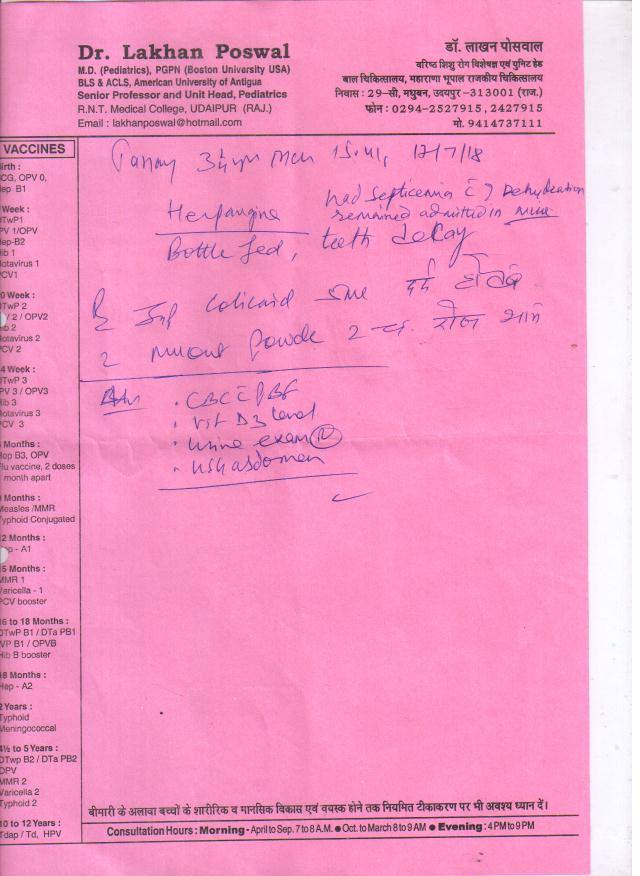 Dr. Lakhan Poswal
M.D. (Pediatrics), PGPN (Boston University USA)
BLS & ACLS, American University of Antigua
Senior Professor and Unit Head, Pediatrics
R.N.T. Medical College, UDAIPUR (RAJ.)
Email : lakhanposwal@hotmail.com
डॉ. लाखन पोसवाल
वरिष्ठ शिशु रोग विशेषज्ञ एवं यूनिट हेड
बाल चिकित्सालय, महाराणा भूपाल राजकीय चिकित्सालय
निवास : 29-सी, मधुबन, उदयपुर -313001 (राज.)
फोन : 0294-2527915, 2427915
मो. 9414737111
VACCINES
irth :
CG, OPV 0,
ep B1
Week :
TwP1
PV 1/OPV
ep-B2
ib 1
otavirus 1
PCV1
0 Week :
TwP 2
/ 2 / OPV2
ib 2
otavirus 2
PCV 2
4 Week :
TwP 3
PV 3 / OPV3
ib 3
otavirus 3
CV 3
Months :
ep B3, OPV
lu vaccine, 2 doses
month apart
Months :
easles /MMR
yphoid Conjugated
2 Months :
- A1
5 Months :
MMR 1
aricella - 1
PCV booster
16 to 18 Months :
DTwP B1 / DTa PB1
VP B1 / OPVB
Hib B booster
18 Months :
Hep - A2
2 Years :
Typhoid
Meningococcal
4½ to 5 Years :
DTwp B2 / DTa PB2
OPV
MMR 2
Varicella 2
Typhoid 2
10 to 12 Years :
Tdap / Td, HPV
17/7/18
Herpangina
had septicemia Dehydration
remained admitted in
Bottle fed, teeth decay
दर्द
powder 2 रोज
. CBC PBF
. Vit D3 level
. urine exam (R)
. USG abdomen
बीमारी के अलावा बच्चों के शारीरिक व मानसिक विकास एवं वयस्क होने तक नियमित टीकाकरण पर भी अवश्य ध्यान दें।
Consultation Hours : Morning - April to Sep. 7 to 8 A.M. ● Oct. to March 8 to 9 AM ● Evening : 4 PM to 9 PM